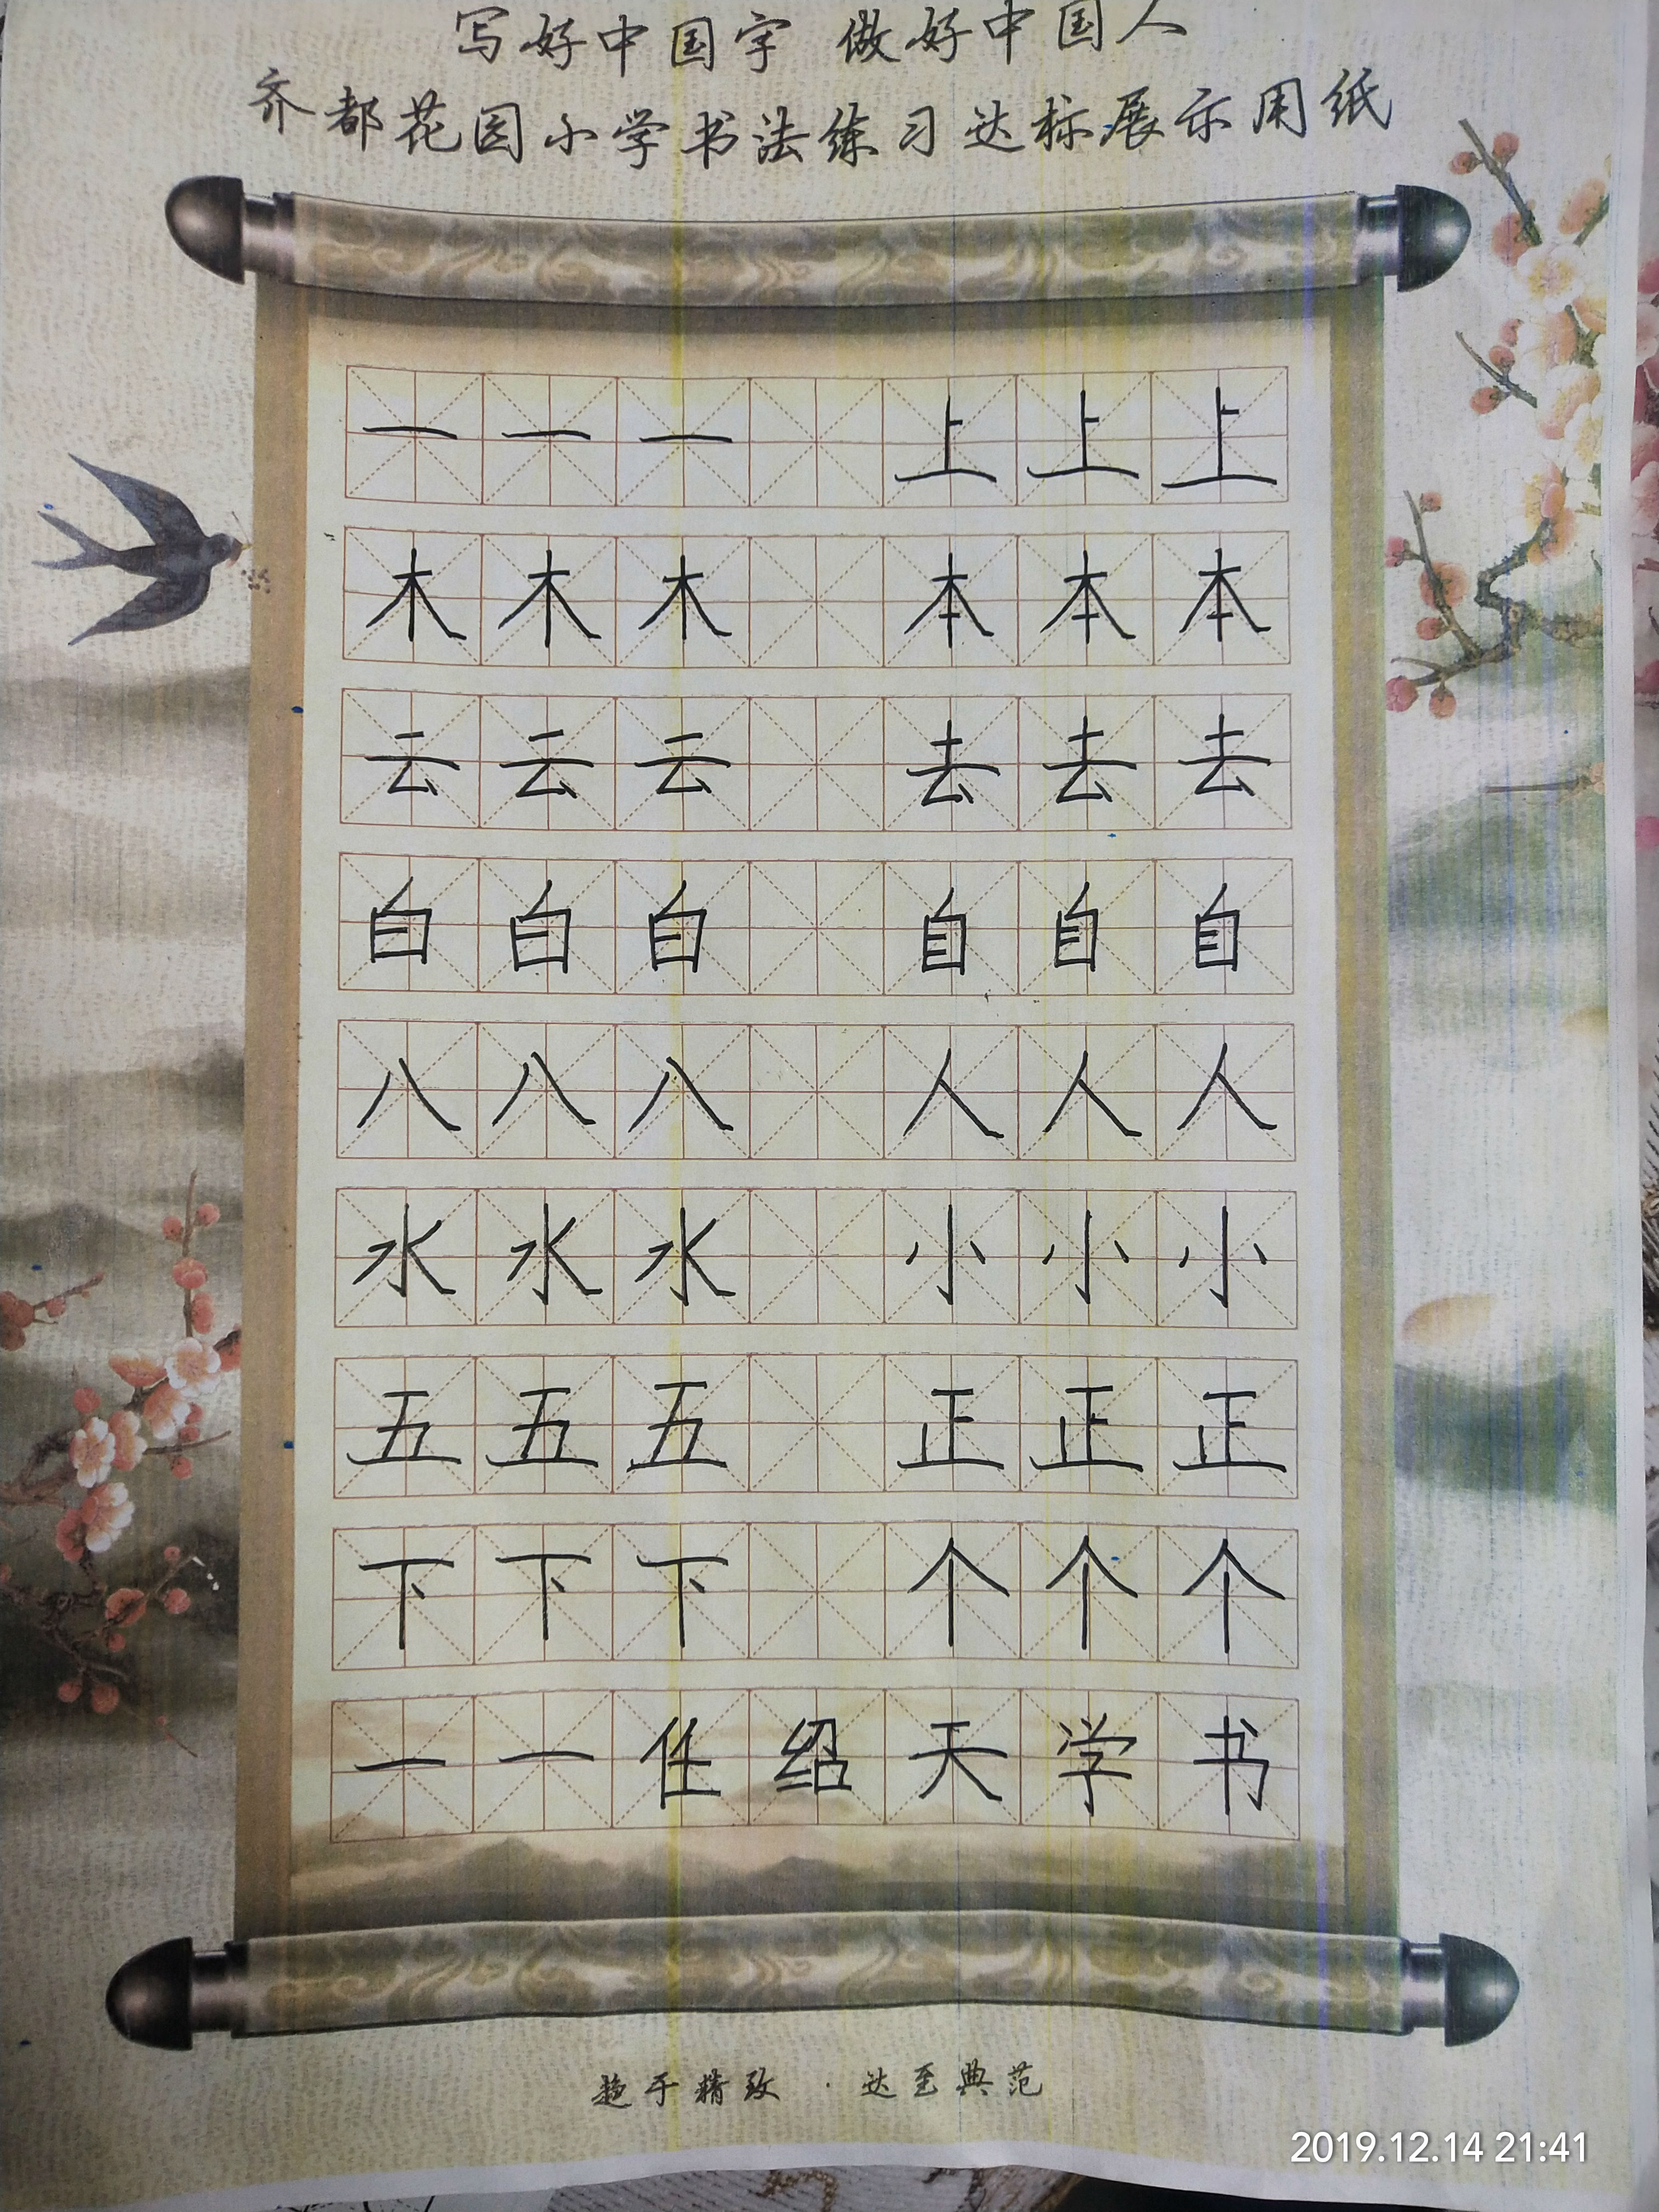 写好中国字 做好中国人
齐都花园小学书法练习达标展示用纸
一一一 上上上
木木木 本本本
云云云 去去去
白白白 自自自
八八八 人人人
水水水 小小小
五五五 正正正
下下下 个个个
一一任绍天学书
趋于精致·达至典范
2019.12.14 21:41